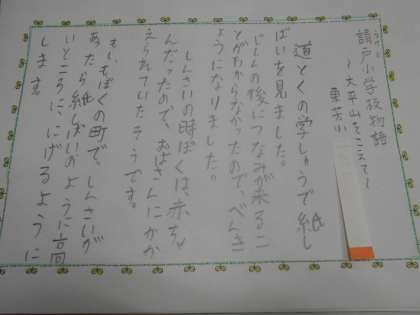 請戸小学校物語
～大平山をこえて～
東芳小
道とくの学しゅうで紙し
ばいを見ました。
じしんの後につなみが来るこ
とがわからなかったので、べんき
ょうになりました。
しんさいの時ぼくは、赤ちゃ
んだったので、お母さんにかか
えられていたそうです。
もし、ぼくの町で、しんさいが
あったら紙しばいのように高
いところに、にげるように
します。